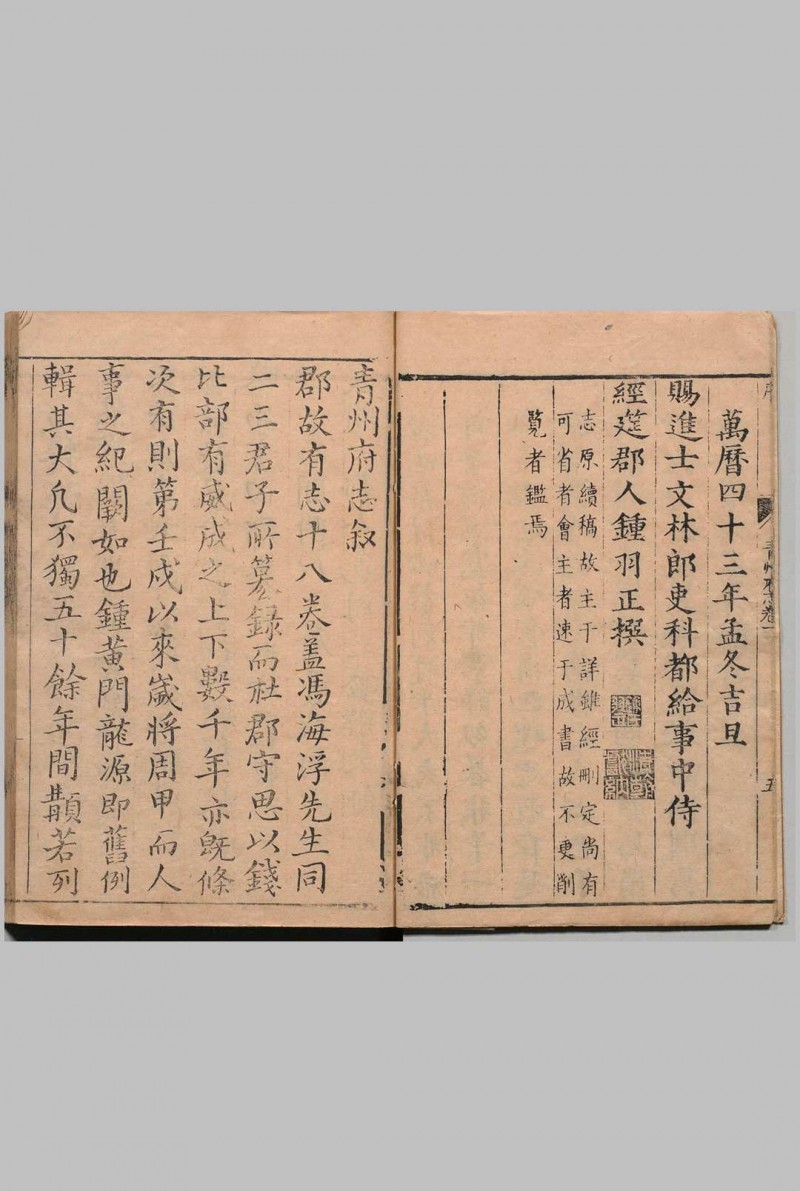 萬曆四十三年孟冬吉旦
賜進士文林郎吏科都給事中侍
經筵郡人鍾羽正撰
志原續稿故主于詳雖經刪定尚有
可省者會主者速于成書故不更削
覽者鑑焉
青州府志叙
郡故有志十八卷盖馮海浮先生同
二三君子所纂録而社郡守思以錢
比部有威成之上下數千年亦旣條
次有則第壬戌以來嵗將周甲而人
事之紀闕如也鍾黃門龍源即舊例
輯其大凡不獨五十餘年間纇若列
青州府志卷一
五